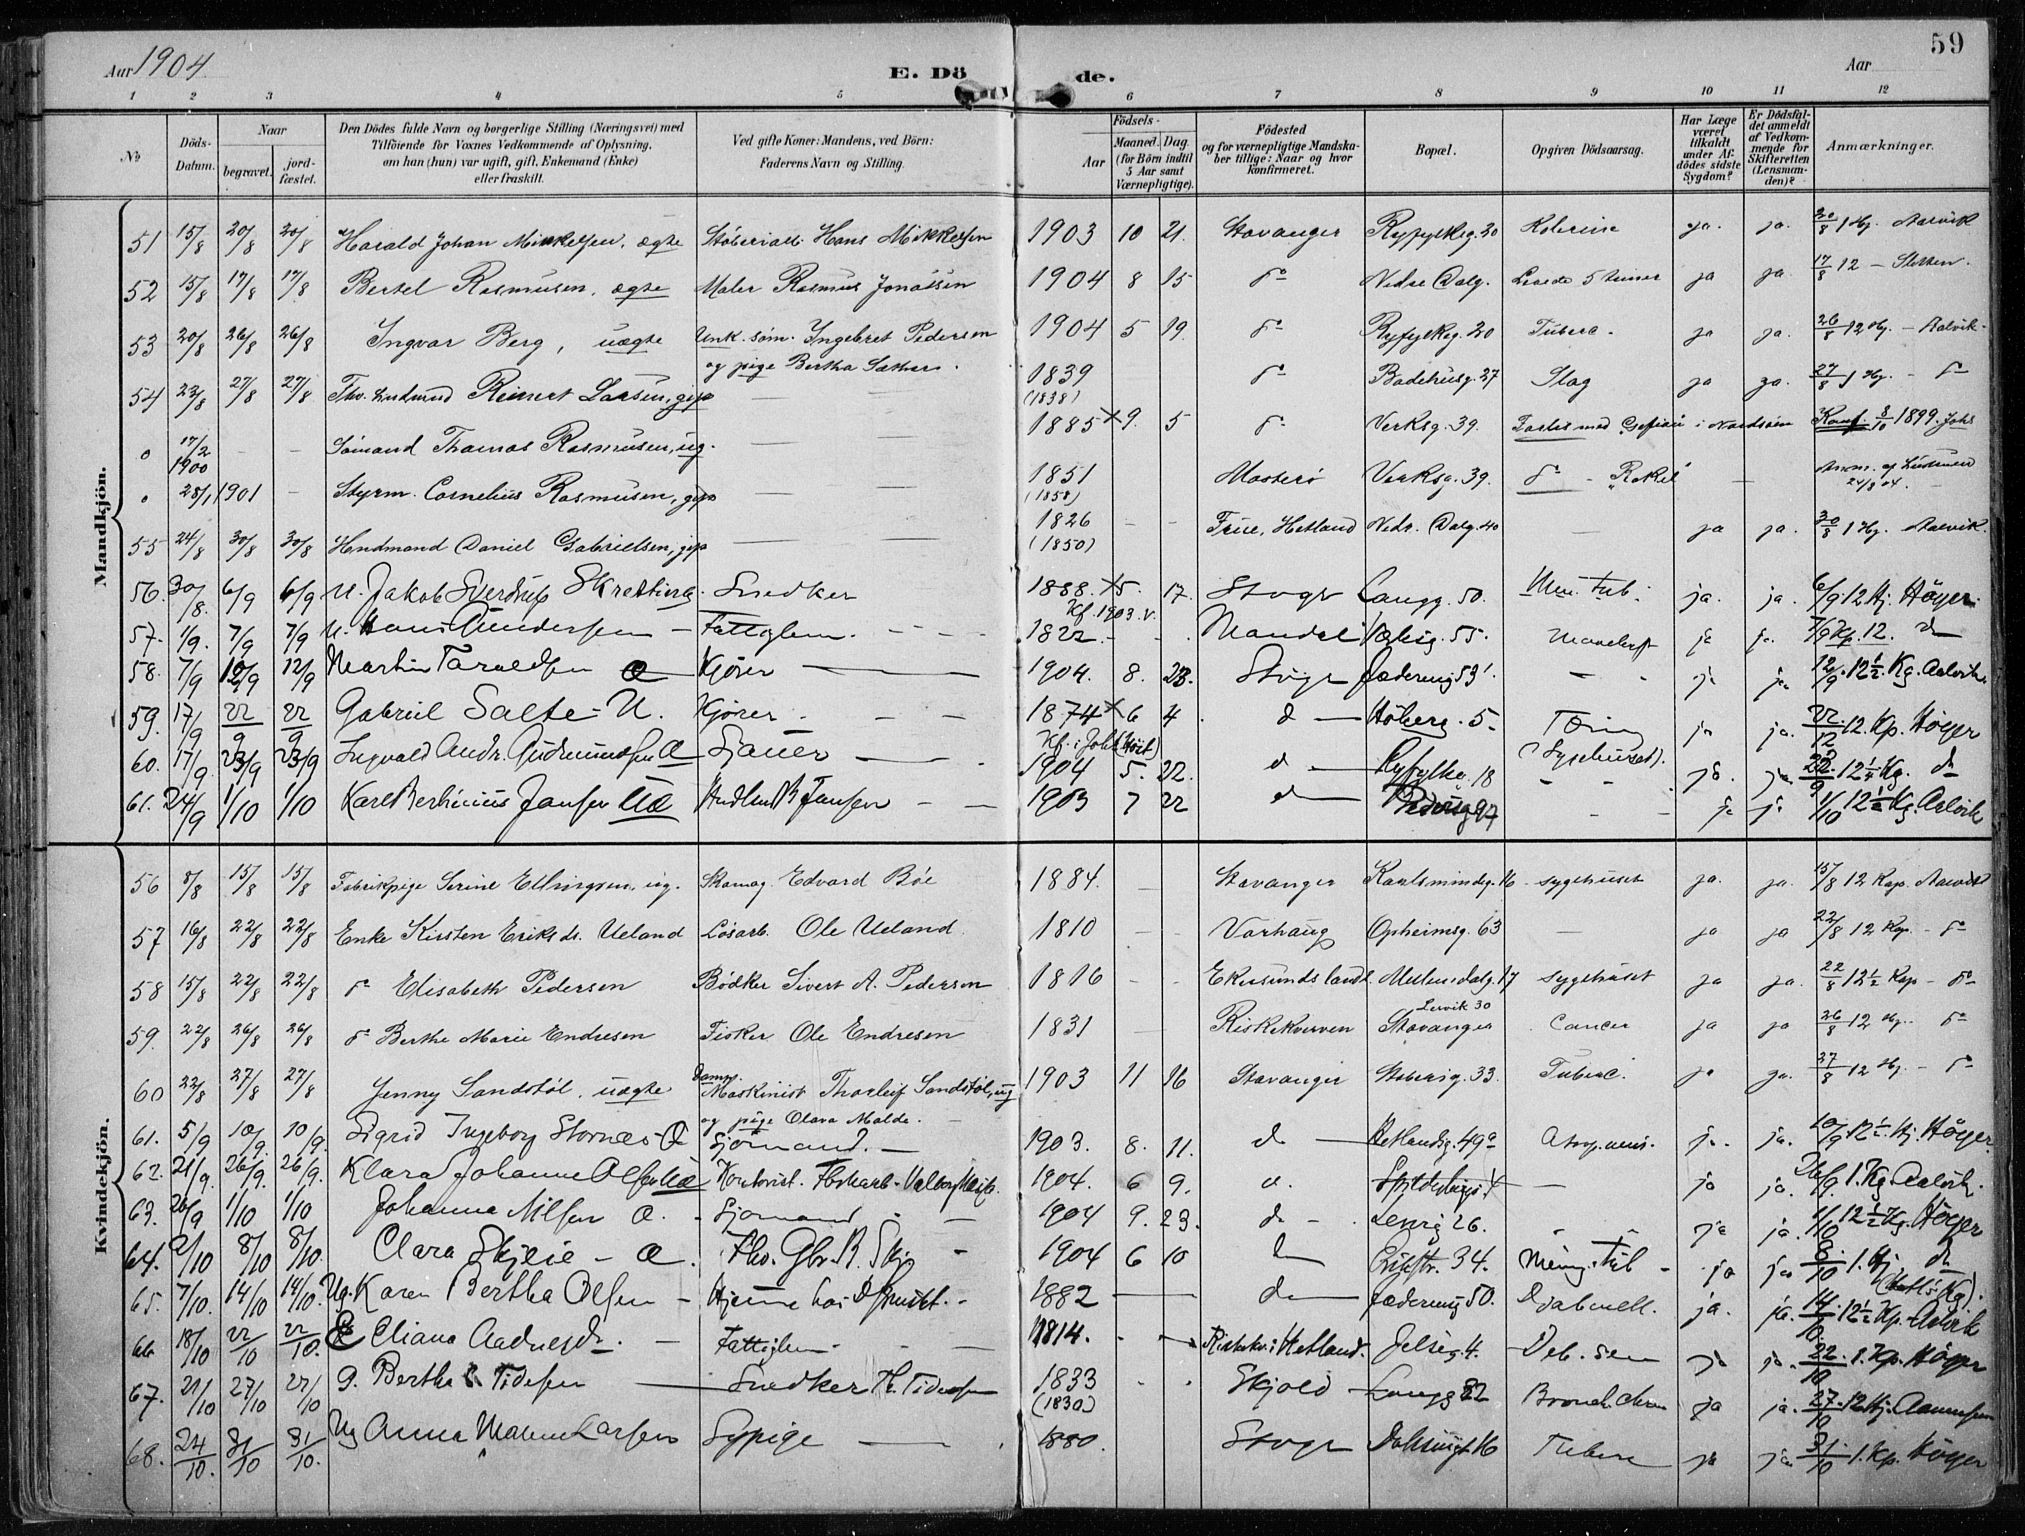 Aar 1904.
E. Döde.
Aar
59
1 2 3 4 5 6 7 8 9 10 11 12
No
Döds-Datum.
Naar begravet. jordfæstet.
Den Dödes fulde Navn og borgerlige Stilling (Næringsvei) med Tilföiende for Voxnes Vedkommende af Oplysning, om han (hun) var ugift, gift, Enkemand (Enke) eller fraskilt.
Ved gifte Koner: Mandens, ved Börn: Faderens Navn og Stilling.
Födsels- Aar Maaned. Dag. (for Börn indtil 5 Aar samt Værnepligtige).
Födested og for værnepligtige Mandskaber tillige: Naar og hvor konfirmeret.
Bopæl.
Opgiven Dödsaarsag.
Har Læge været tilkaldt under Afdödes sidste Sygdom?
Er Dödsfaldet anmeldt af Vedkommende for Skifteretten (Lensmanden)?
Anmærkninger.
Mandkjön.
51 15/8 20/8 20/8 Harald Johan Mikkelsen, ægte Hans Mikkelsen 1903 10 21. Stavanger Ryfylkeg. 30 Kolerine ja. ja. 20/8 1 Hj. Aalvik
52 15/8 17/8 17/8 Bertel Rasmusen, ægte Maler Rasmus Jonassen 1904 8 15 do Nedre Dalg. Levede 5 timer ja ja. 17/8 12 - Sletten.
53 20/8 26/8 26/8 Ingvar Berg, uægte Unk. søm. Ingebret Pedersen 1904 5 19. do Ryfylkeg. 20 Tuberc. ja ja. 26/8 12 Hj. - Aalvik -
og pige Bertha
54 23/8 27/8 27/8 Reinert Larsen, gift 1839 (1838) do Badehusg. 27 Slag ja ja. 27/8 1 Hj. - do
17/2 1900 - - Sømand Thomas Rasmusen, ug. 1885 x 9. 5 do Verksg. 39. i Nordsøen Konf. 8/10 1899. Johs
28/1 1901 - Styrm. Cornelius Rasmusen, gift 1851 (1858) Mosterø Verksg. 39. do - "Rakel" 24/8 04.
55 24/8 30/8 30/8 Daniel Gabrielsen, gift 1826 (1850) - - Frue, Hetland Nedr. Dalg. 40 ja ja. 30/8 1 Hj. Aalvik.
56. 30/8. 6/9 6/9 U. Jakob Sverdrup Skretting. Snedker 1888. x 5. 17. Kf. 1903. v. Stvgr Langg. 50. Men. tub. ja. ja. 6/9. 12 Hj. Höyer.
57. 1/9. 7/9 7/9 U. Hans Gundersen - Fattiglem. 1822. Mandal 55. ja 7/9 Kp. 12. do
58. 7/9 12/9 12/9 Martin Taraldsen Æ Kjører 1904. 8. 23. Stvgr Jæderveig 53 ja ja 12/9. 12½. Kg. Aalvik.
59. 17/9 22/9 22/9 Gabriel Salte - U. Kjører. 1874 x 6 4 Kf. i Joh. d Høberg. 5 - Tæring (Sygehuset). ja ja. 22/12. 12. Kp. Höyer
60. 17/9. 23/9 23/9 Ingvald Andr. Gudmundsen Æ Sjauer 1904 5. 22. d Ryfylkeg. 18 ja. ja 22/9. 12¼ Kg. do
61. 24/9 1/10 1/10 Karl Berhinius Jansen UÆ Jansen 1903 7 22 d 97 ja ja 1/10 12½ Kg. Aalvik
Kvindekjön.
56 8/8 15/8 15/8 Fabrikpige Serine Ellingsen, ug. Skomag. Edvard Bøe 1884. Stavanger Karlsmindeg. 16 - sygehuset ja. ja. 15/8 12 Kap. Aalvik
57 16/8 22/8 22/8 Enke Kirsten Eriksdr. Ueland Løsarb. Ole Ueland. 1810 Varhaug Opheimsg. 63 ja ja 22/8 12 Kap. - do
58 15/8 22/8 22/8 do Elisabeth Pedersen Bødker Sivert A. Pedersen 1816 Ekersunds landd. Møllendalg. 17 sygehuset ja ja. 22/8 12½ Kap - do
59. 22/8 26/8 26/8 do Berthe Marie Endresen Fisker Ole Endresen 1831 Riskekverven Lervik 30 Stavanger Cancer ja ja 26/8 12 Hj. do
60 22/8 27/8 27/8 Jenny Sandstøl, uægte Damp. Maskinist Thorleif Sandstøl, ug 1903 11 16 Stavanger Støberig. 33. Tuberc. ja ja. 27/8 12 Hj. - do
og pige Olava Malde.
61. 5/9 10/9. 10/9. Sigrid Ingeborg Stornes - Æ Sjømand. 1903. 8. 11. d Hetlandsg. 49a ja. ja. 10/9 12½. Hj. Höyer.
62. 21/9. 26/9. 26/9. Klara Johanne Olsen UÆ 1904. 6 9. d. ja ja. 26/9. 1. Kg. Aalvik.
63. 26/9 1/10 1/10 Johanna Nilsen Æ. Sjømand 1904 9. 23. d Lervig 26. ja ja. 1/10 12½ Kg. Höyer
64. 2/10 8/10 8/10. Clara Skjeie - Æ. 1904 6 10 d 34. Mening. tub ja ja 8/10 1. Hj. do
65. 7/10. 14/10 14/10. Ug. Karen Bertha Olsen - Hjemme hos 1882 d Jæderveig 50. Diab. mell. ja. ja. 14/10. 12½ Kp. Aalvik
66 18/10 22/10 22/10. E Eliana Aadnesdr. Fattiglem 1814. Riskekv. i Hetland. Jelseg. 4. - Deb. sen ja ja. 22/10 1. Kp. Höyer
67. 21/10 27/10 27/10 G. Bertha Tidesen Snedker H. Tidesen 1833 (1830) Skjold Langg 82 Bronch. chron ja ja. 27/10. 12 Hj.
68. 24/10. 31/10 31/10. Ug Anna Malene Larsen Sypige 1880. Stvgr 16 Tuberc ja ja. 31/10 1. Kp. Höyer